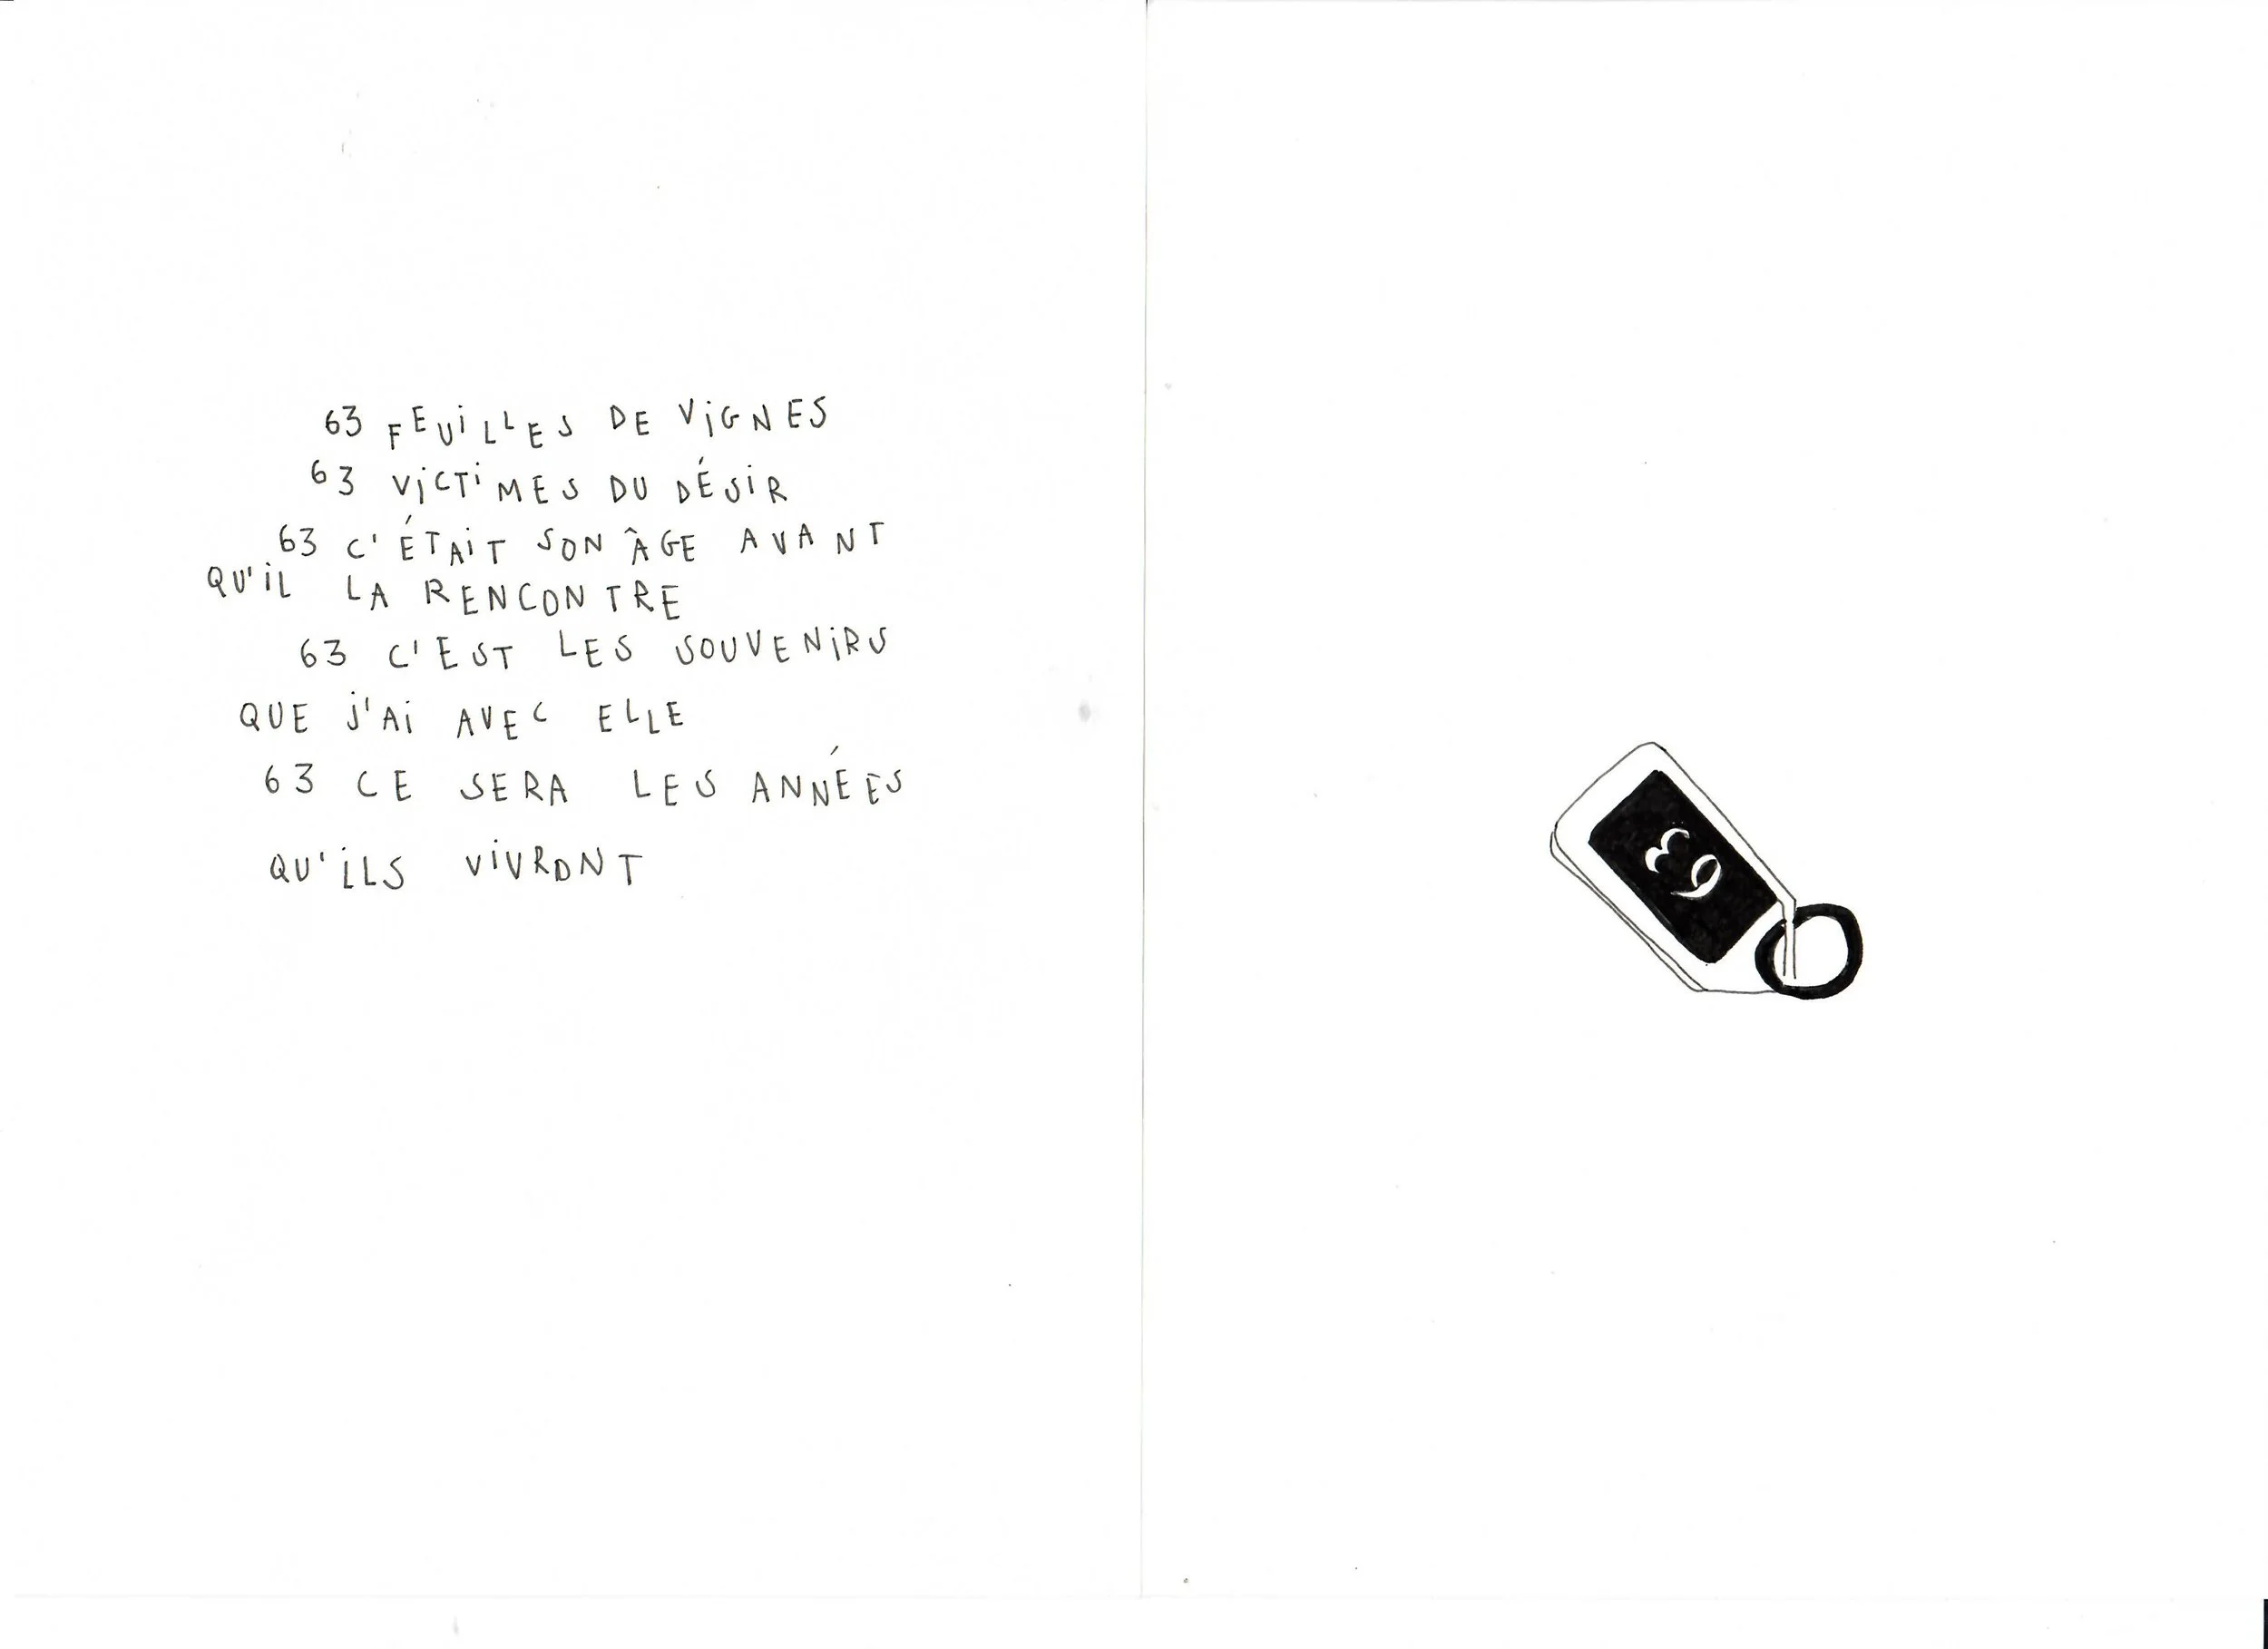 63 FEUILLES DE VIGNES
63 VICTIMES DU DÉSIR
63 C'ÉTAIT SON ÂGE AVANT
QU'IL LA RENCONTRE
63 C'EST LES SOUVENIRS
QUE J'AI AVEC ELLE
63 CE SERA LES ANNÉES
QU'ILS VIVRONT
63